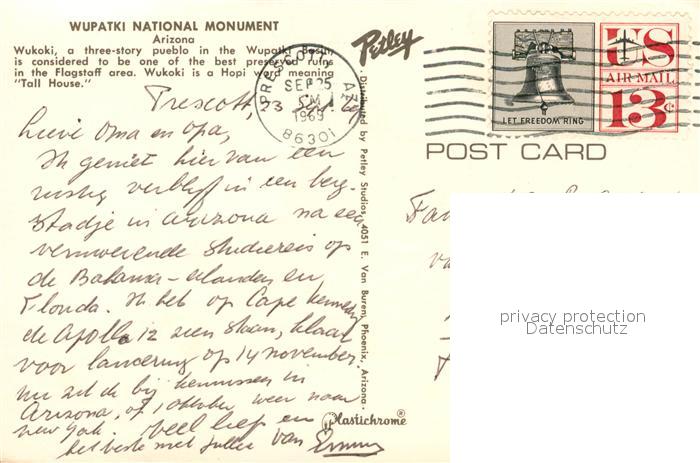 WUPATKI NATIONAL MONUMENT
Arizona
Wukoki, a three-story pueblo in the Wupatki Basin,
is considered to be one of the best preserved ruins
in the Flagstaff area. Wukoki is a Hopi word meaning
"Tall House."
Prescott, 23 Sept
Lieve Oma en Opa,
Ik geniet hier van een
rustig verblijf in een berg-
stadje in Arizona na een
vermoeiende studiereis op
de Bahama-eilanden en
Florida. Ik heb op Cape Kennedy
de Apollo 12 zien staan, klaar
voor lancering op 14 november.
nu zit ik bij kennissen in
Arizona, of 1 oktober weer naar
New York. veel liefs en
het beste met jullie van
Petley
Distributed by Petley Studios, 4051 E. Van Buren, Phoenix, Arizona.
Plastichrome®
PRESCOTT ARIZ
SEP 25
PM
1969
86301
LET FREEDOM RING
US
AIR MAIL
13c
POST CARD
Fam
va
privacy protection
Datenschutz